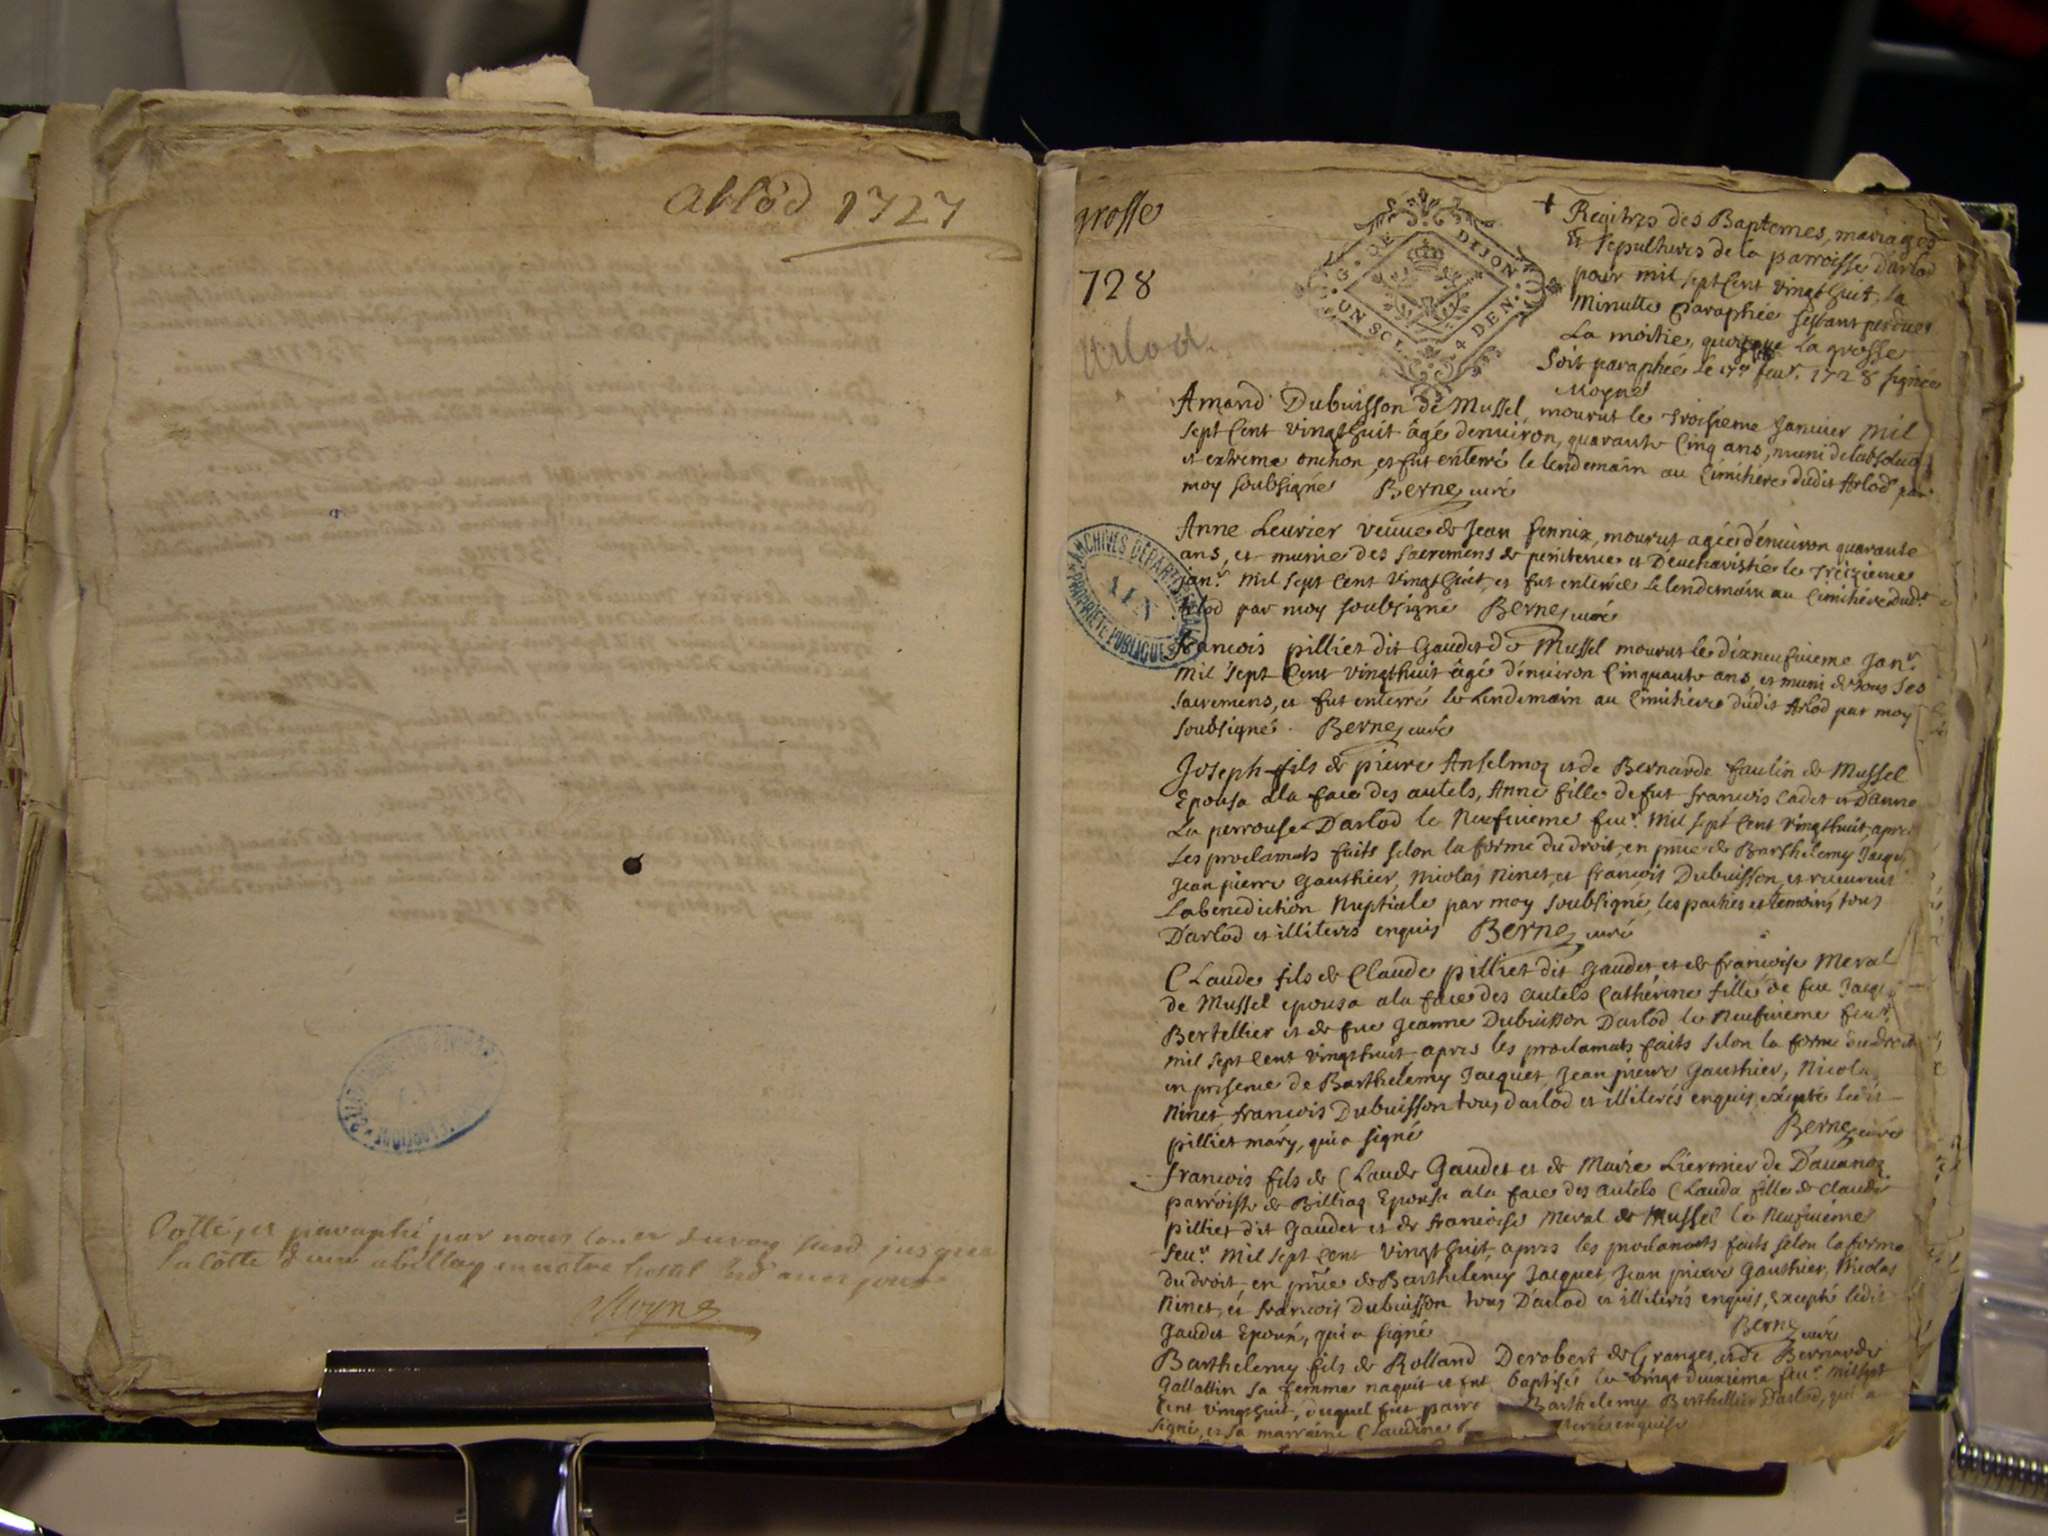 Arlod 1727
Cotté et paraphé par nous
la cotte
Moyne
grosse
728
Arlod.
G. DE DIJON
UN SOL 4 DEN.
+ Regitres des Baptemes, mariages
Et sepultures de la parroisse Darlod
pour mil sept Cent vingt huit, la
Minutte paraphée s'estant perdue
La moitie, quoyque La grosse
Soit paraphée le 17e feur. 1728 signée
Moyne
Amand Dubuisson de Mussel, mourut le troisieme Janvier mil
sept Cent vingt huit âgé denviron quarante Cinq ans, muni de labsolu
et extreme onction, et fut enterré le lendemain au Cimitiere dudit Arlod par
moy soubsigné Berne curé
Anne Leuvier veuve de Jean fennix, mourut agée dénviron quarante
ans, et munie des sacremens de penitence et Deucharistie le treizieme
janr. mil sept Cent vingt huit, et fut enterrée le lendemain au Cimitiere dudt
Arlod par moy soubsigné Berne curé
francois pilliet dit Gaudet de Mussel mourut le dixneufvieme Janr.
mil sept Cent vingt huit âgé dénviron Cinquante ans, et muni de tous ses
sacremens, et fut enterré le Lendemain au Cimitiere dudit Arlod par moy
soubsigné. Berne curé
Joseph fils de pierre Anselmoz et de Bernarde faulin de Mussel
Epousa ala face des autels, Anne fille de fut francois Cadet et D'anne
La perrouse D'arlod le Neufvieme feur. mil sept Cent vingt huit, apres
Les proclamats faits selon la forme du droit, en pnce de Barthelemy Jacqu
Jean pierre Gauthier, Nicolas Ninet, et francois Dubuisson, et recurent
Labenediction Nuptiale par moy soubsigné, les parties et temoins tous
D'arlod et illiterés enquis Berne curé
Claude fils de Claude pilliet dit Gaudet, et de francoise Meral
de Mussel epousa ala face des autels Catherine fille de feu Jacq
Bertellier et de fue Jeanne Dubuisson D'arlod le Neufvieme feur.
mil sept Cent vingt huit, apres les proclamats faits selon la forme du droit
en presence de Barthelemy Jacquet, Jean pierre Gauthier, Nicola
Ninet, francois Dubuisson tous d'arlod et illiterés enquis, éxcepté ledit
pilliet máry, qui a signé Berne curé
francois fils de Claude Gaudet et de Marie Liermier de Davanoz
parroisse de Billiaz Epousa ala face des autels Clauda fille de claude
pilliet dit Gaudet et de francoise Meral de Mussel le Neufvieme
feur. mil sept Cent vingt huit, apres les proclamats faits selon la forme
du droit, en pnce de Barthelemy Jacquet, Jean pierre Gauthier, Nicolas
Ninet, et francois Dubuisson tous D'arlod et illiterés enquis, Excepté ledit
Gaudet Epoux, qui a signé Berne curé
Barthelemy fils de Rolland Derobert de Granges, et de Bernarde
Gallattin sa femme naquit et fut baptisé le vingt deuxieme feur. mil sept
Cent vingt huit, duquel fut parr Barthelemy Berthellier D'arlod, qui a
signé, et sa marraine Claudine enquise
ARCHIVES DÉPARTEMENTALES
AIN
PROPRIÉTÉ PUBLIQUE